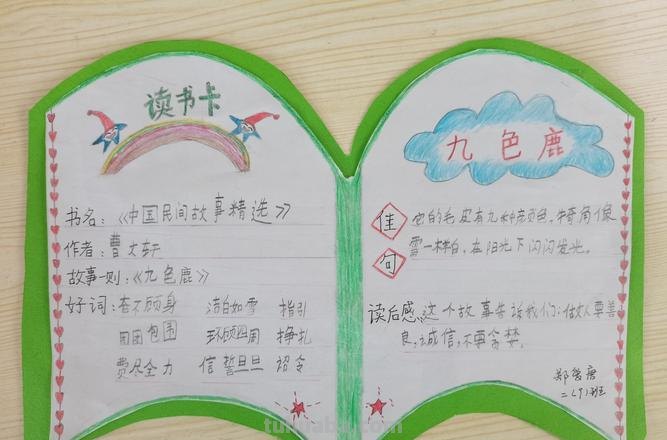 读书卡
书名:《中国民间故事精选》
作者:曹文轩
故事一则:《九色鹿》
好词:奋不顾身 洁白如雪 指引
团团包围 环顾四周 挣扎
费尽全力 信誓旦旦 诏令
九色鹿
佳句
它的毛皮有九种颜色,犄角像
雪一样白,在阳光下闪闪发光。
读后感:这个故事告诉我们:做人要善
良,诚信,不要贪婪。
二(9)班